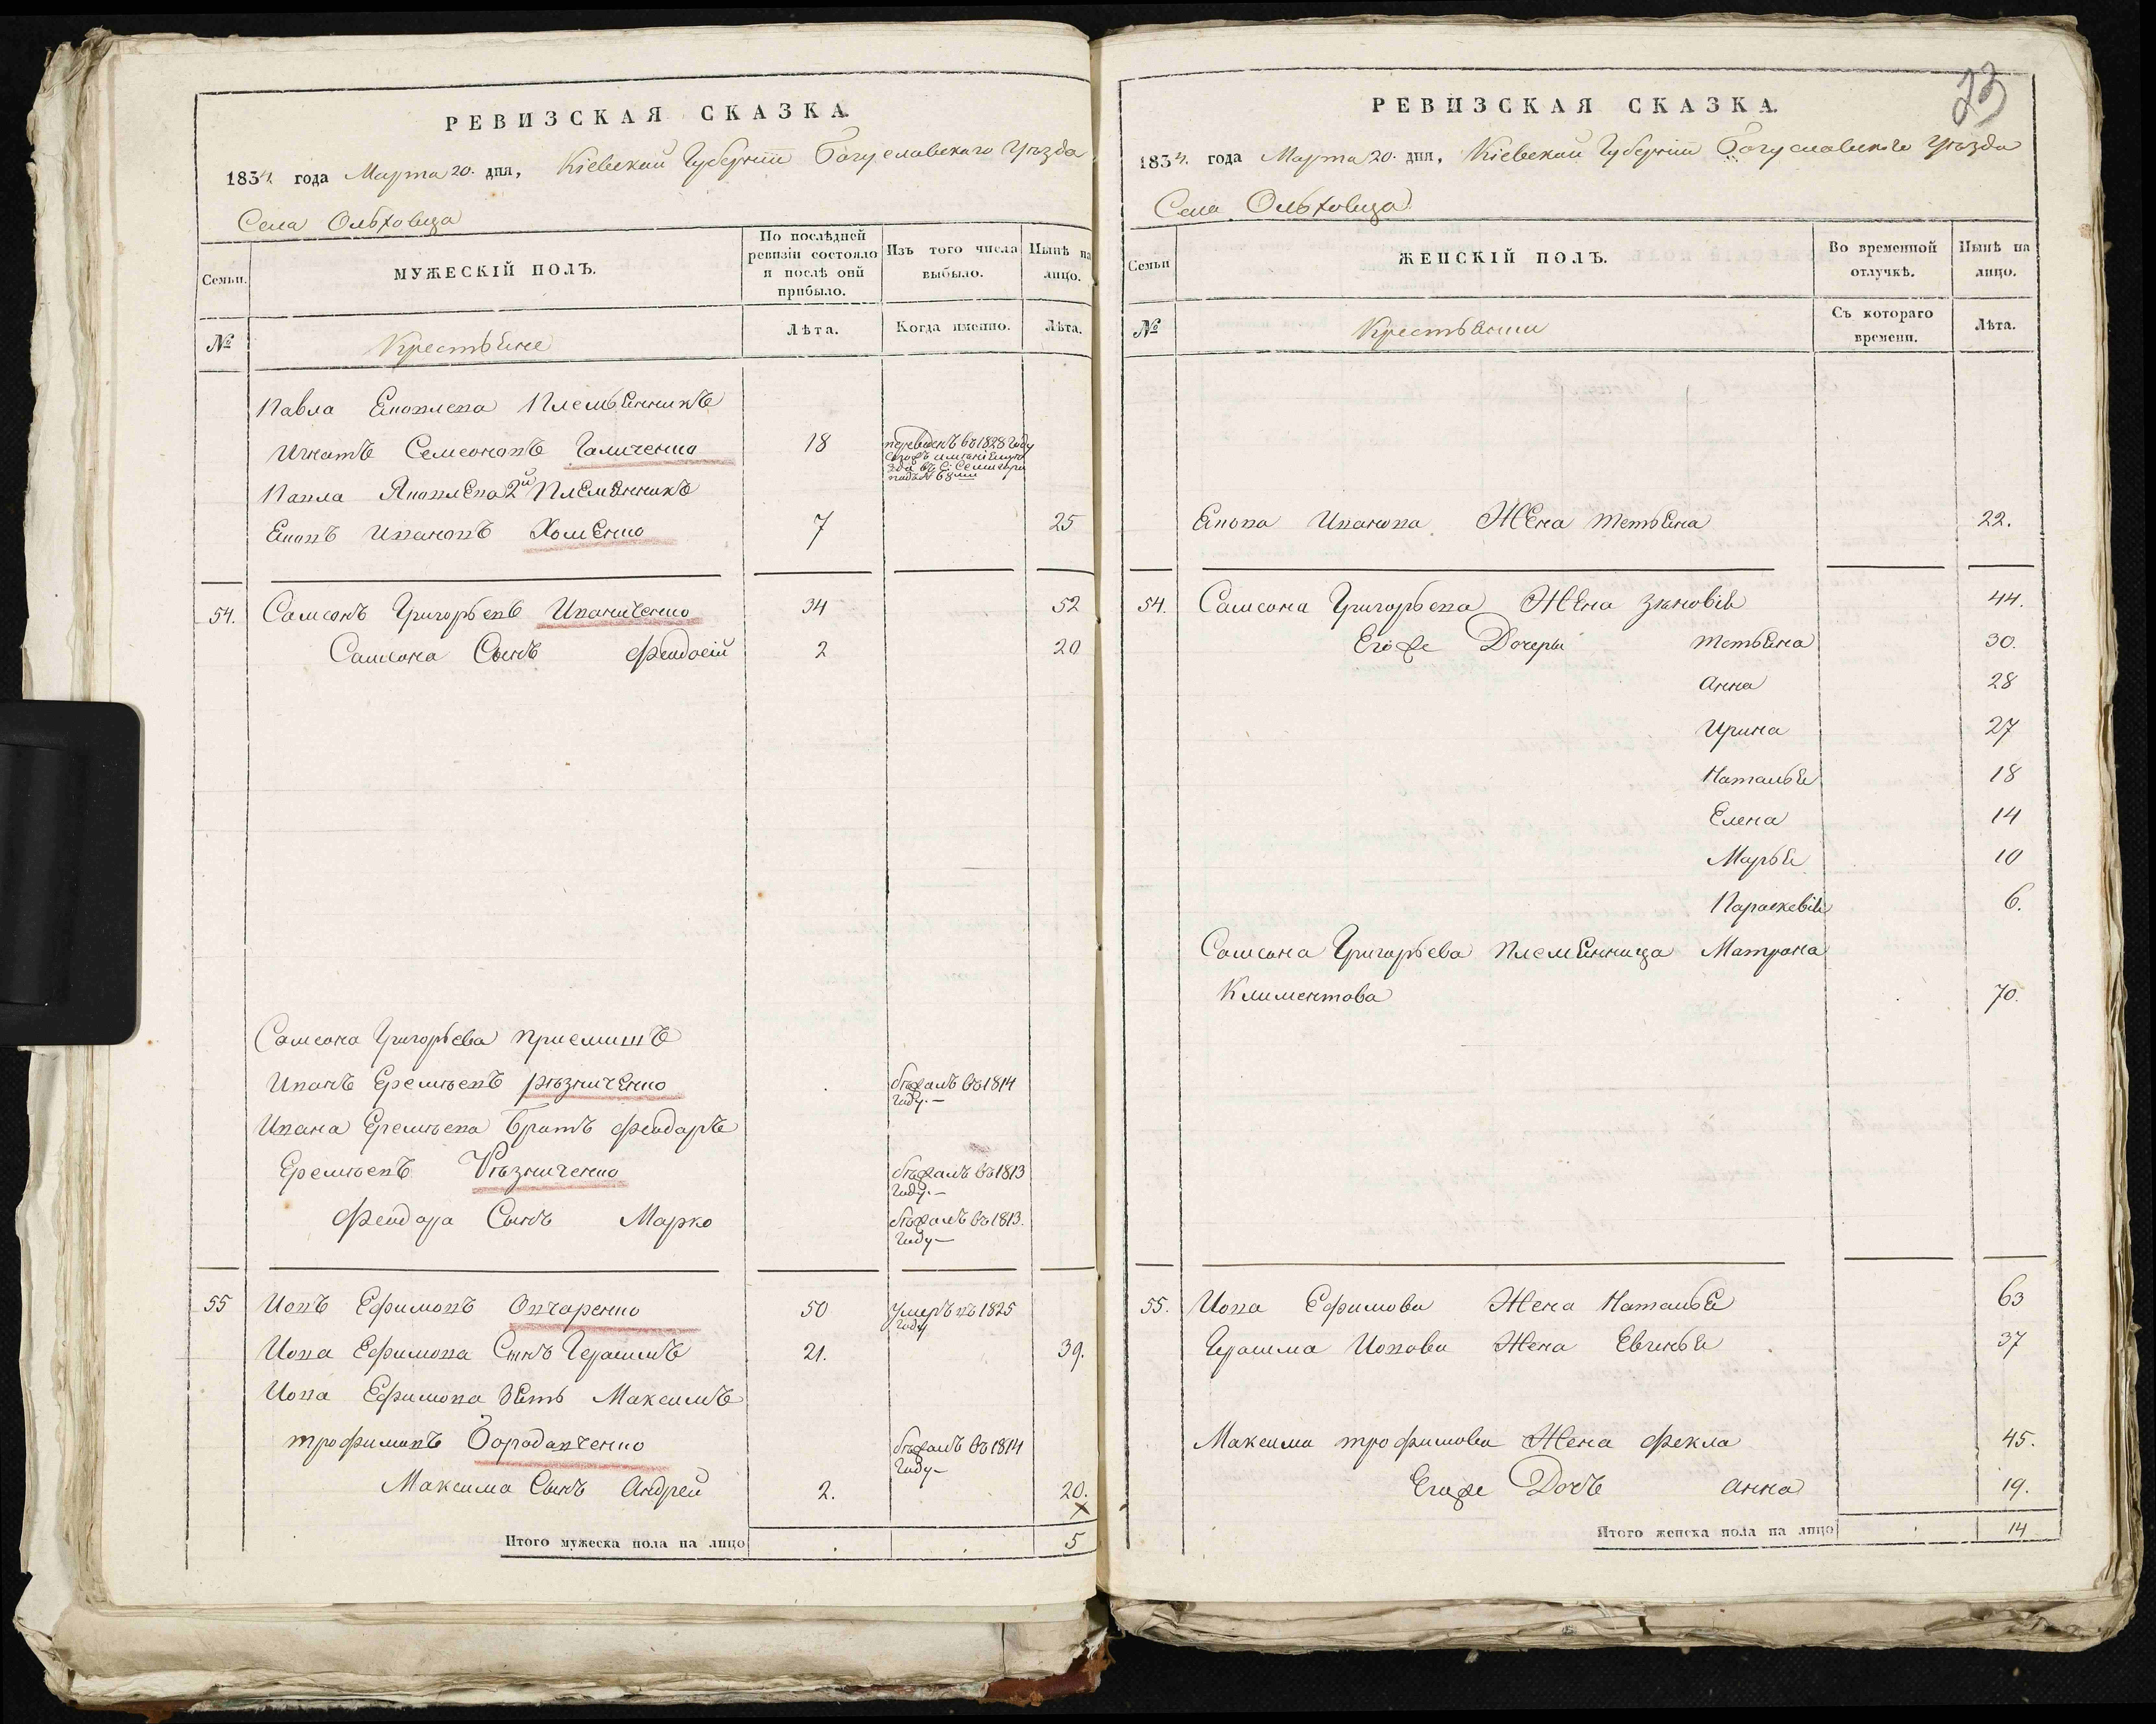 РЕВИЗСКАЯ СКАЗКА.
1834. года Марта 20. дня, Кіевской Губерніи Богуславскаго Уѣзда
Села Ольховца
Семьи.
МУЖЕСКІЙ ПОЛЪ.
По послѣдней ревизіи состояло и послѣ оній прибыло.
Изъ того числа выбыло.
Нынѣ на лицо.
№
Крестьяне
Лѣта.
Когда именно.
Лѣта.
Павла Племянникъ
Игнатъ Семеоновъ Галиченко 18 переведенъ въ 1828 Году
подъ № 68
Павла 2й Племянникъ
Ивановъ Хоменко 7 25
54. Самсонъ Григорьевъ Иваниченко 34 52
Самсона Сынъ Феодосій 2 20
Самсона Григорьева приемышъ
Иванъ Еремѣевъ Рѣзниченко бѣжалъ въ 1814
Году.-
Ивана Еремѣева Братъ Феодоръ
Еремѣевъ Рѣзниченко бѣжалъ въ 1813
Году.-
Феодора Сынъ Марко бѣжалъ въ 1813.
Году-
55 Иовъ Ефимовъ Овчаренко 50 Умеръ въ 1825
Году
Иова Ефимова Сынъ Герасимъ 21. 39.
Иова Ефимова Зять Максимъ
Трофимовъ Бородавченко бѣжалъ въ 1814
Году-
Максима Сынъ Андрей 2. 20.
Итого мужеска пола на лицо 5
23
РЕВИЗСКАЯ СКАЗКА.
1834. года Марта 20. дня, Кіевской Губерніи Богуславскаго Уѣзда
Села Ольховца
Семьи
ЖЕНСКІЙ ПОЛЪ.
Во временной отлучкѣ.
Нынѣ на лицо.
№
Крестьянки
Съ котораго времени.
Лѣта.
Иванова Жена Татьяна 22.
54. Самсона Григорьева Жена Зѣновія 44.
Егоже Дочери Татьяна 30.
Анна 28
Ирина 27
Наталья 18
Елена 14
Марья 10
Параскевія 6.
Самсона Григорьева племянница Матрона
Климентова 70.
55. Иова Ефимова Жена Наталья 63
Герасима Иовова Жена Евгенья 37
Максима Трофимова Жена Фекла 45.
Егоже Дочь Анна 19.
Итого женска пола на лицо 14